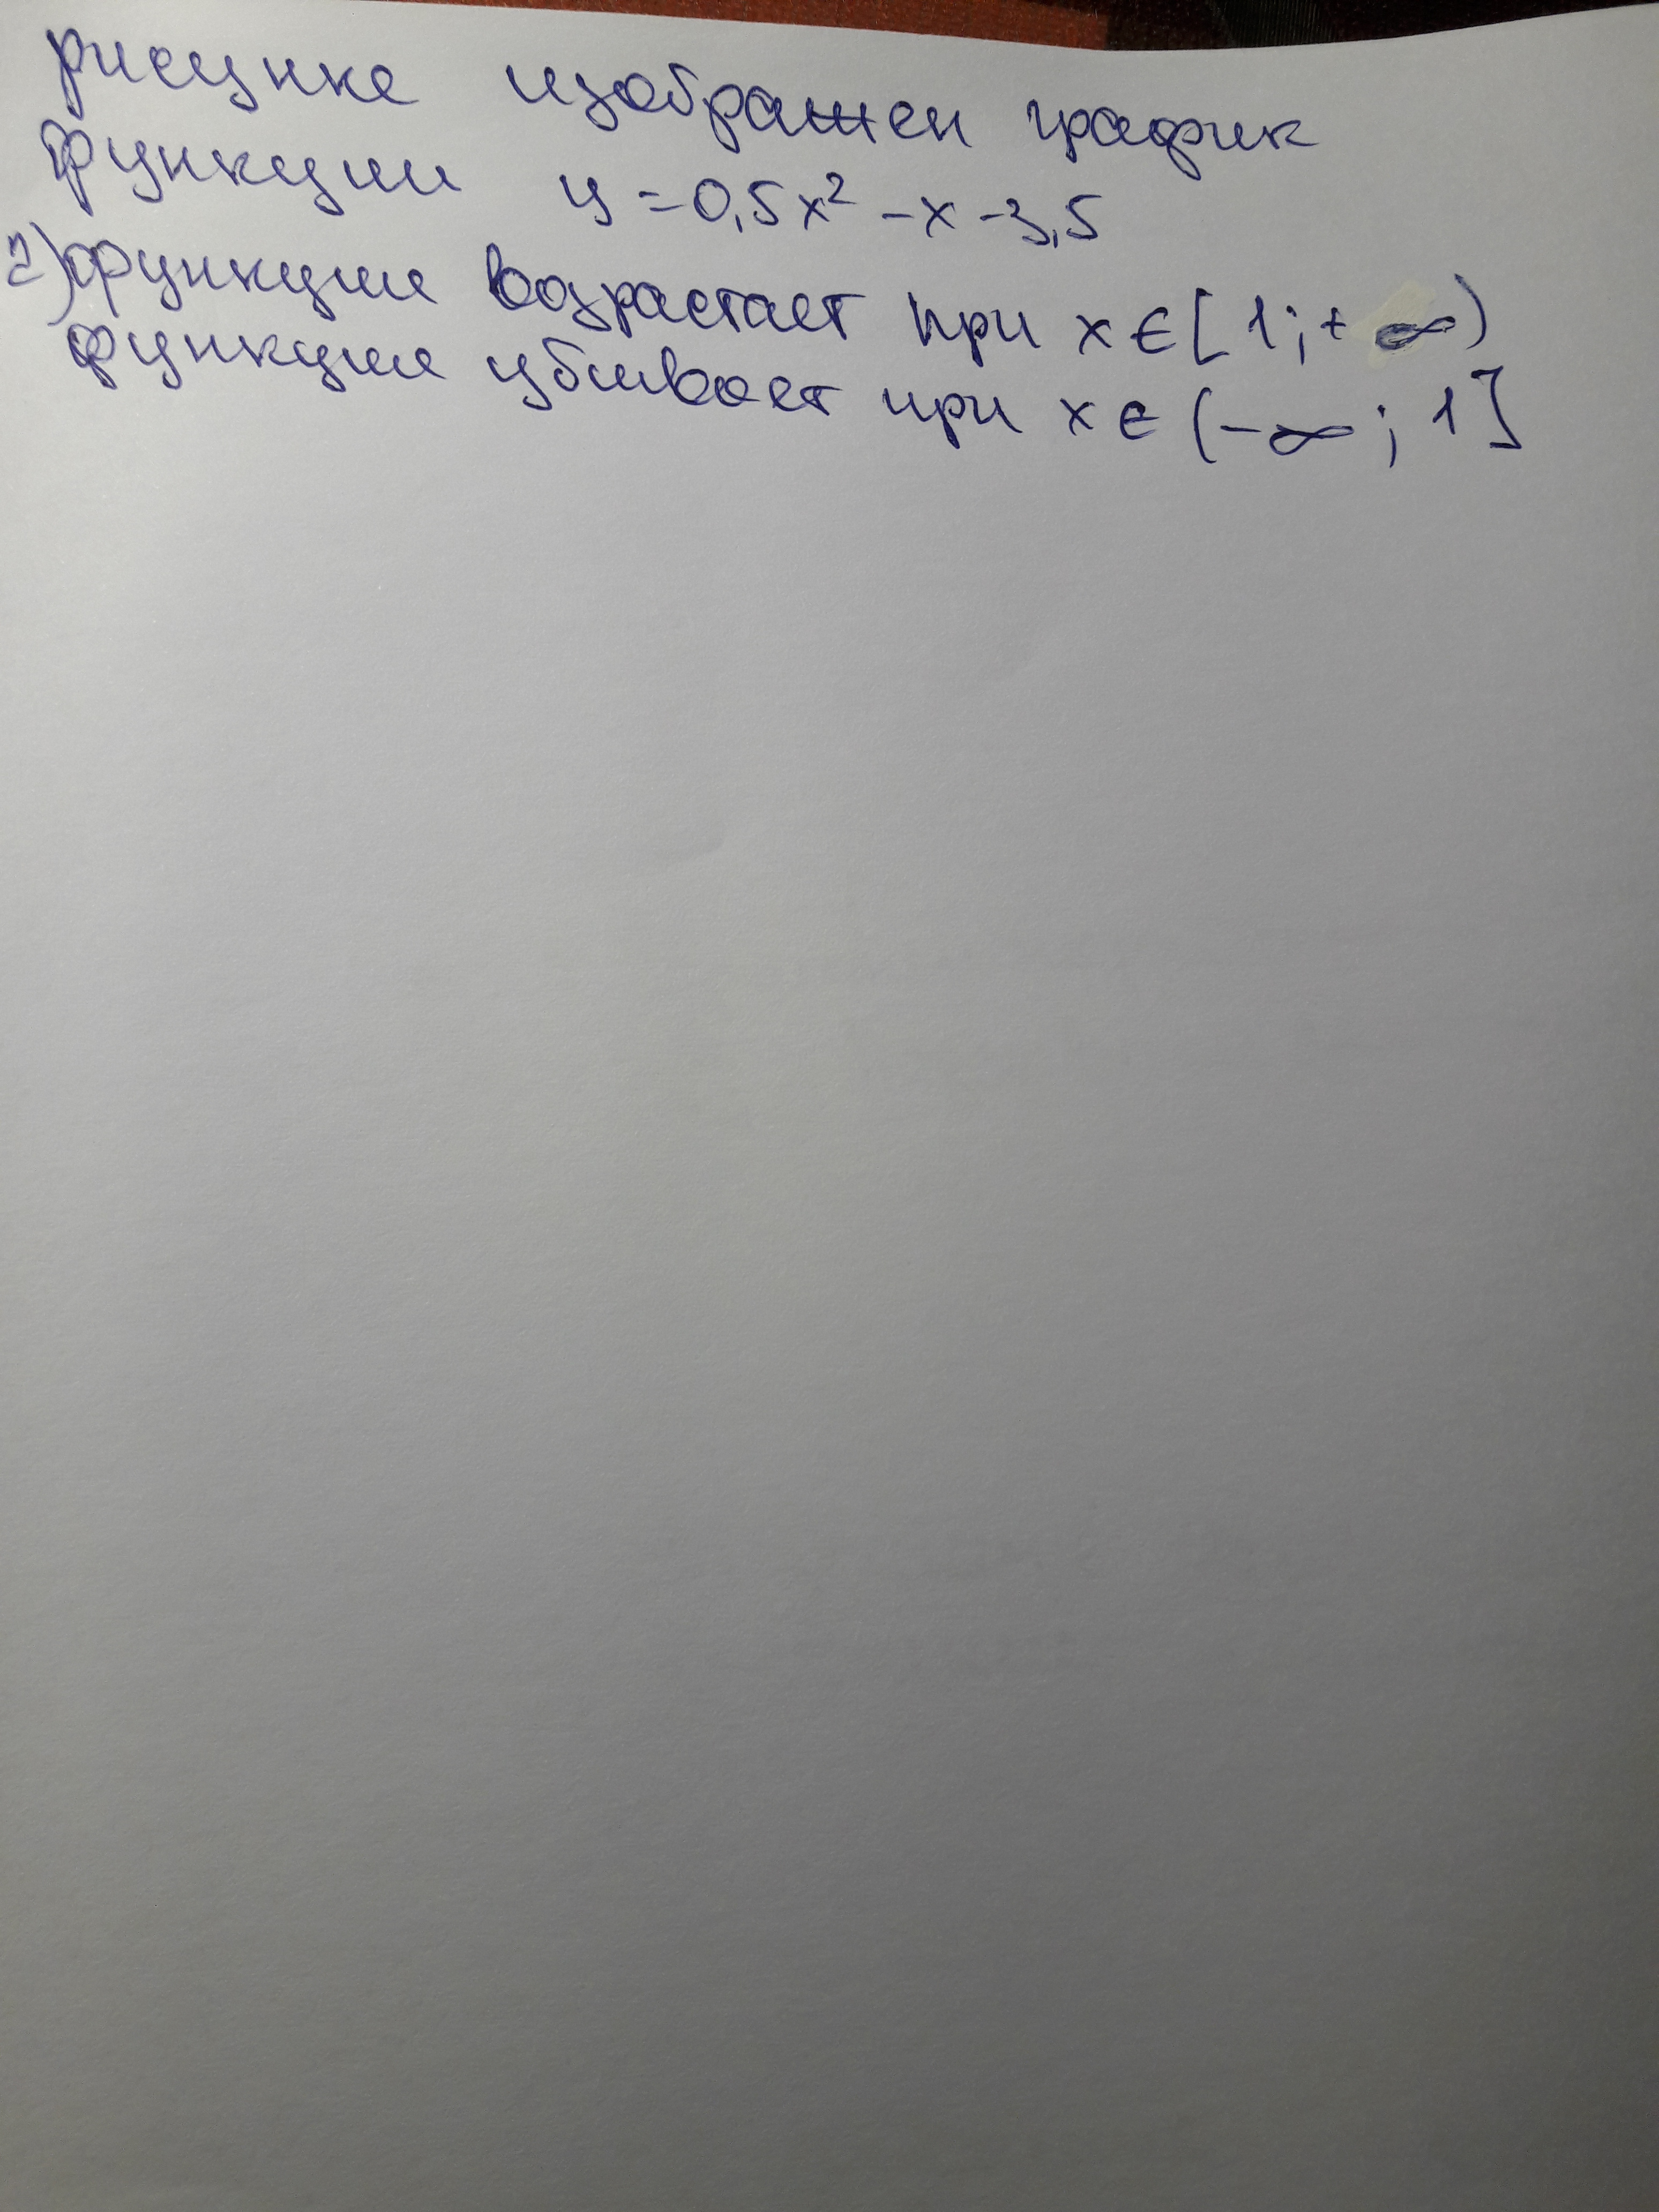 рисунке изображен график
функции y = 0,5x² - x - 3,5
2) функция возрастает при x ∈ [1; + ∞)
функция убывает при x ∈ (-∞; 1]